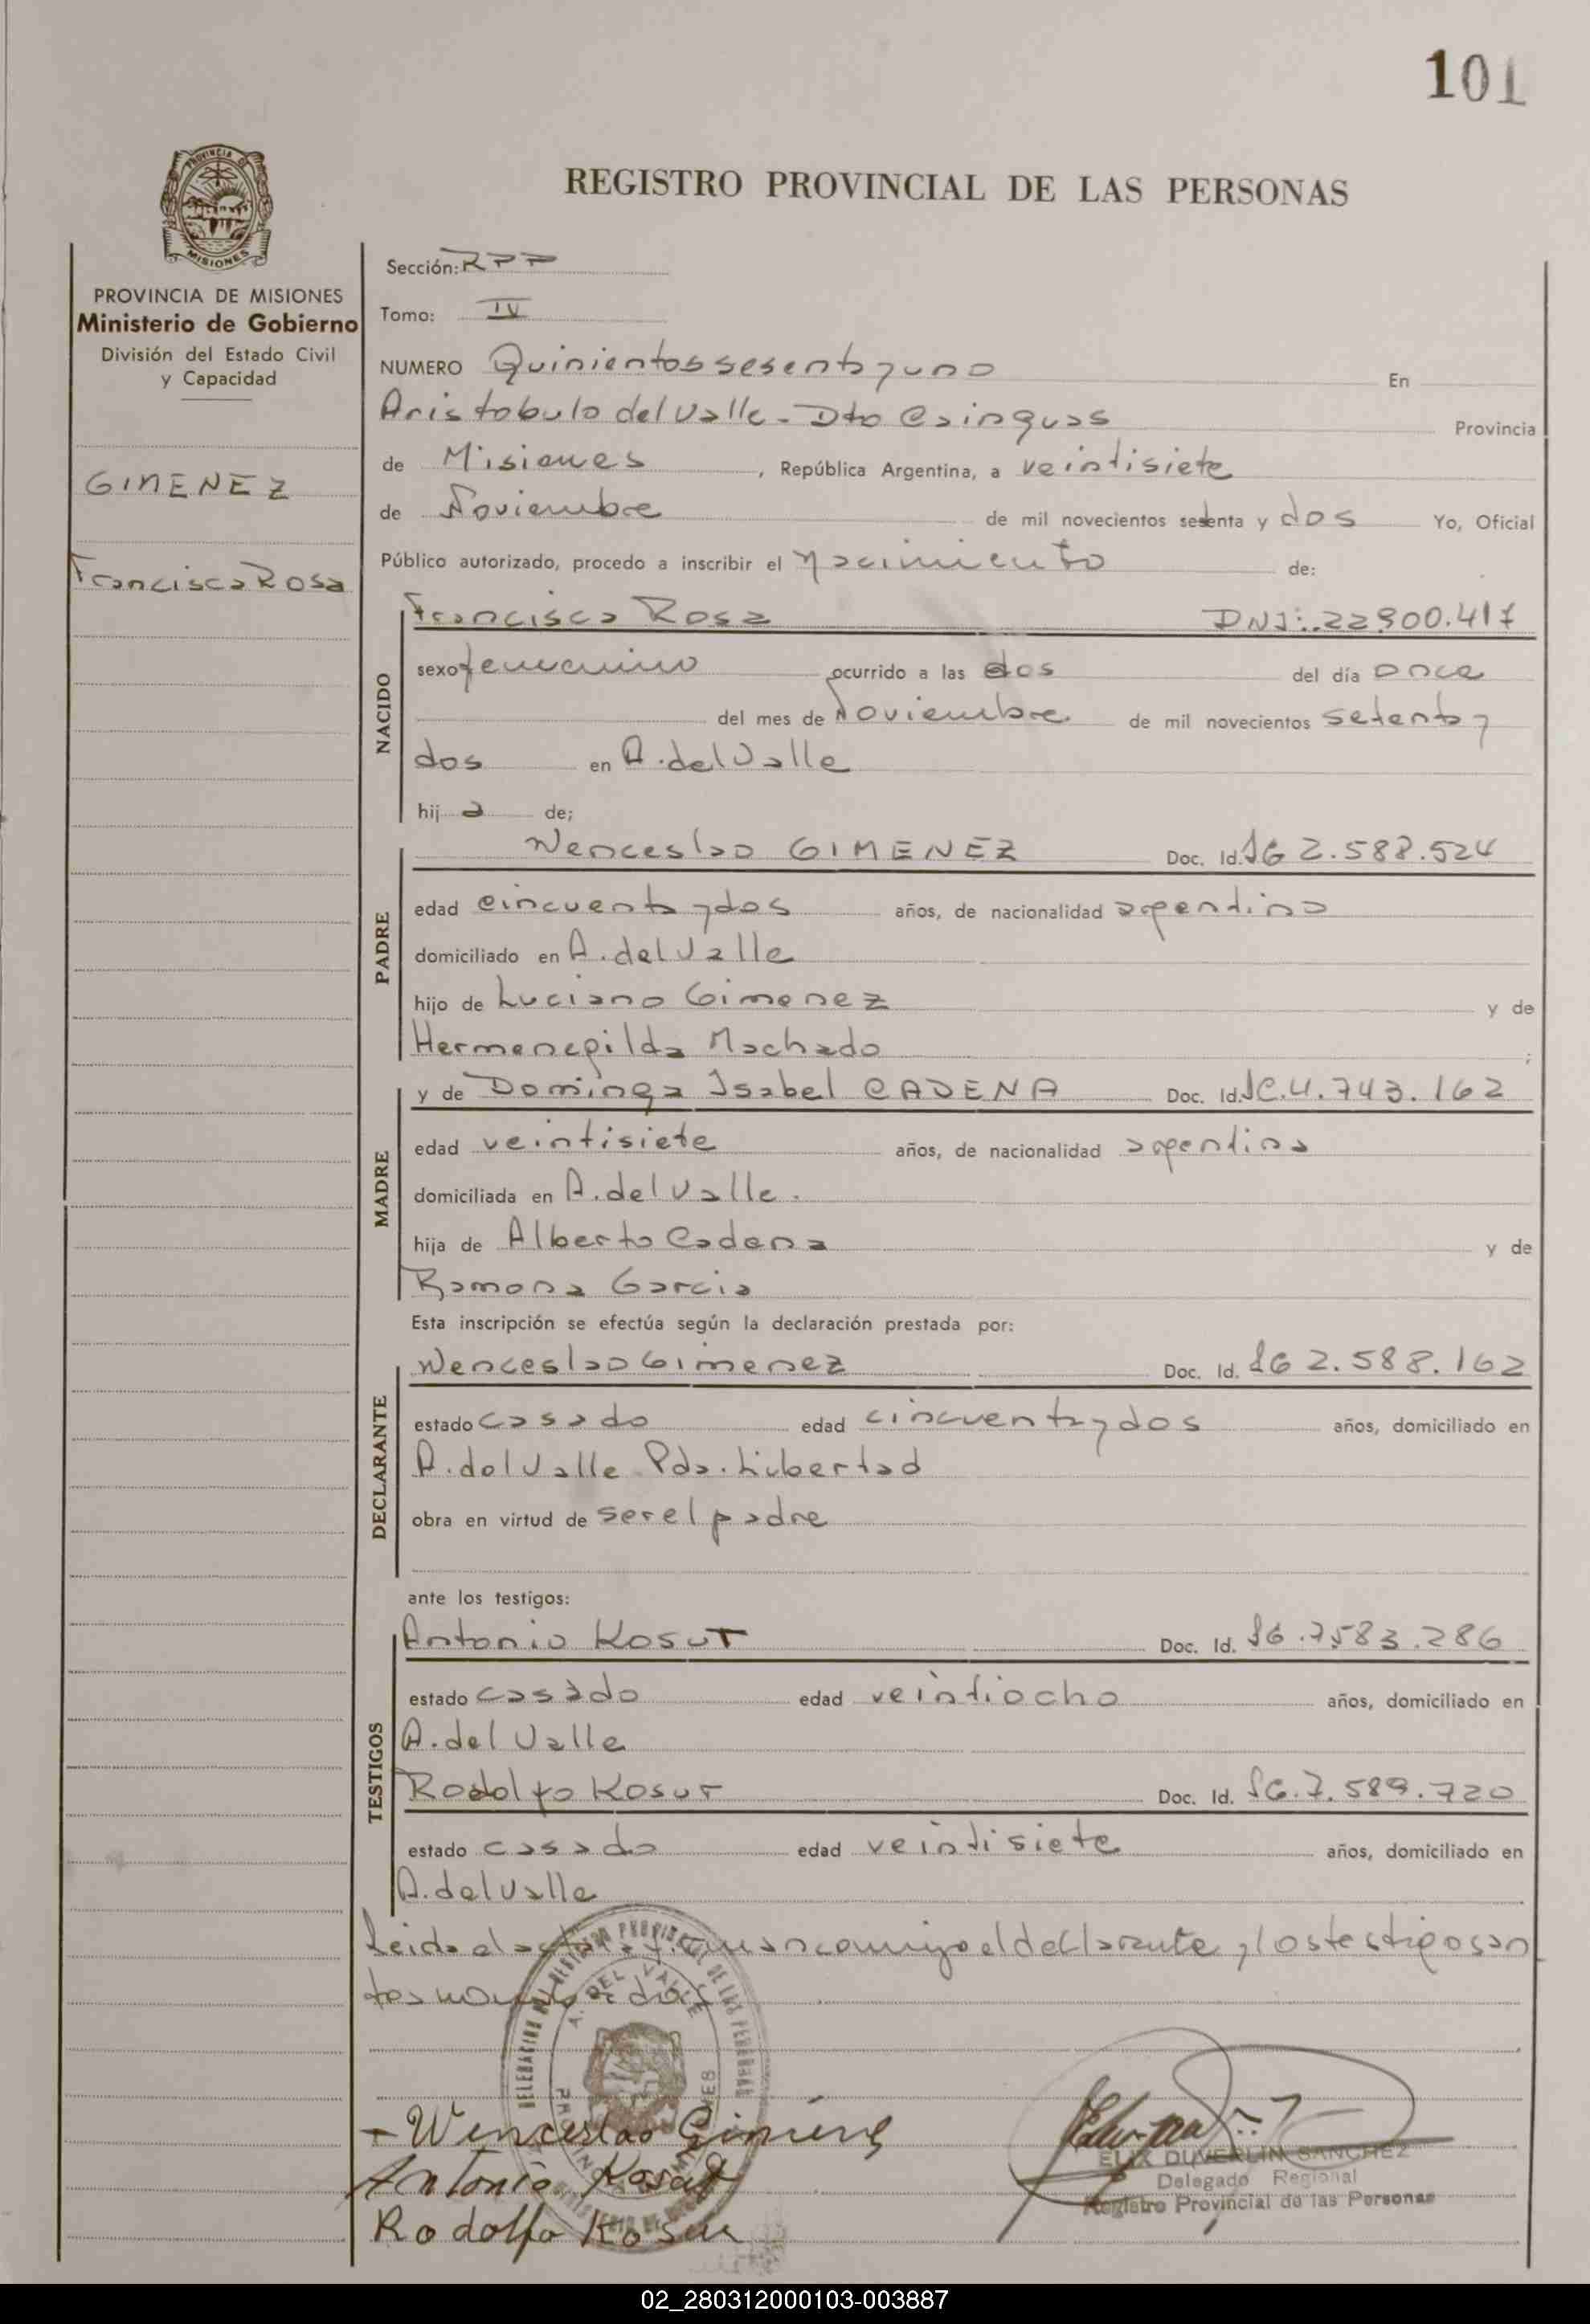 101
REGISTRO PROVINCIAL DE LAS PERSONAS
PROVINCIA DE
MISIONES
PROVINCIA DE MISIONES
Ministerio de Gobierno
División del Estado Civil
y Capacidad
GIMENEZ
Francisca Rosa
Sección: RPP
Tomo: IV
NUMERO Quinientos sesenta y uno En
Aristobulo del Valle - Dto Cainguas Provincia
de Misiones, República Argentina, a veintisiete
de Noviembre de mil novecientos setenta y dos Yo, Oficial
Público autorizado, procedo a inscribir el Nacimiento de:
NACIDO
Francisca Rosa DNI: 22.900.417
sexo femenino ocurrido a las dos del día once
del mes de Noviembre de mil novecientos setenta y
dos en A. del Valle
hij a de;
PADRE
Wenceslao GIMENEZ Doc. Id. 2.588.524
edad cincuenta y dos años, de nacionalidad argentino
domiciliado en A. del Valle
hijo de Luciano Gimenez y de
Hermenegilda Machado ;
MADRE
y de Dominga Isabel CADENA Doc. Id. LC. 4.743.162
edad veintisiete años, de nacionalidad argentina
domiciliada en A. del Valle.
hija de Alberto Cadena y de
Ramona Garcia
Esta inscripción se efectúa según la declaración prestada por:
DECLARANTE
Wenceslao Gimenez Doc. Id. 2.588.162
estado casado edad cincuenta y dos años, domiciliado en
A. del Valle Pda. Libertad
obra en virtud de ser el padre
ante los testigos:
TESTIGOS
Antonio Kosut Doc. Id. 7.583.286
estado casado edad veintiocho años, domiciliado en
A. del Valle
Rodolfo Kosut Doc. Id. 7.589.720
estado casado edad veintisiete años, domiciliado en
A. del Valle
Leida el acta firman conmigo el declarante y los testigos an
tes nombrados
A. DEL VALLE
Wenceslao Gimenez
Antonio Kosut
Rodolfo Kosut
FELIX DUVERLIN SANCHEZ
Delegado Regional
Registro Provincial de las Personas
02_280312000103-003887